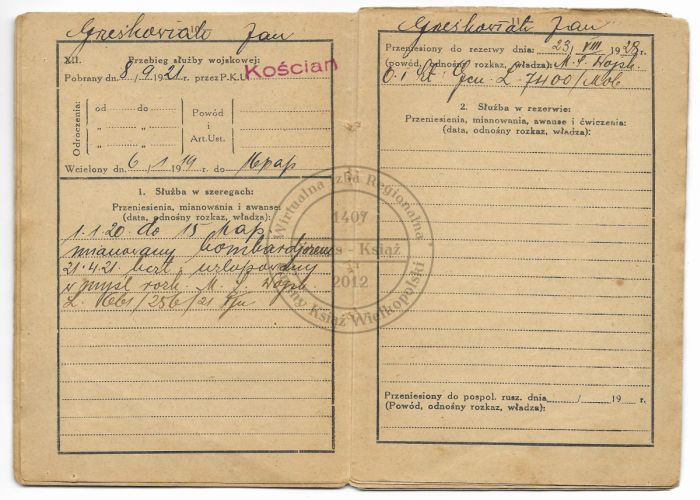 Greskowiak Jan
XII. Przebieg służby wojskowej:
Pobrany dn. 8/9 1921 r. przez P.K.U. Kościan
Odroczenia:
od do
„ „
„ „
Powód
i
Art.Ust.
Wcielony dn. 6/1 1919 r. do
1. Służba w szeregach:
Przeniesienia, mianowania i awanse:
(data, odnośny rozkaz, władza):
1.1.20. do 15 pap.
mianowany bombardjerem
21.4.21. bezt. urlopowany
w myśl rozk. M. S. Wojsk.
Greskowiak Jan
Przeniesiony do rezerwy dnia: 23/VIII 1928 r.
(powód, odnośny rozkaz, władza): M. S. Wojsk.
2. Służba w rezerwie:
Przeniesienia, mianowania, awanse i ćwiczenia:
(data, odnośny rozkaz, władza):
Przeniesiony do pospol. rusz. dnia / 19 r.
(Powód, odnośny rozkaz, władza):
Wirtualna Izba Regionalna
1407
Książ
2012
Książ Wielkopolski